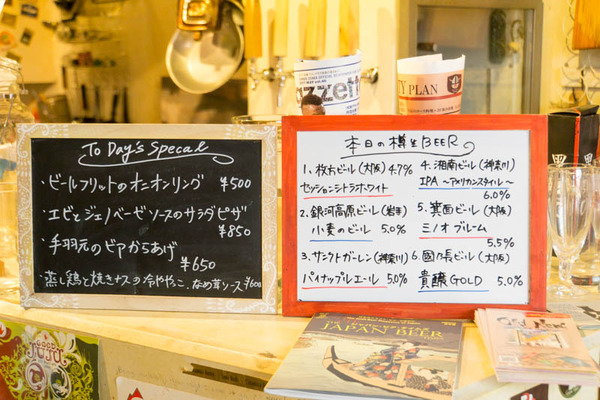 To Day's Specal
・ビールフリットのオニオンリング ¥500
・エビとジェノベーゼソースのサラダピザ
¥850
・手羽元のビアからあげ
¥650
・蒸し鶏と焼きナスの冷ややっこ、なめ茸ソース ¥600
本日の樽生BEER
1、枚方ビール(大阪) 4.7%
セッションシトラホワイト
2、銀河高原ビール(岩手)
小麦のビール 5.0%
3、サンクトガーレン(神奈川)
パイナップルエール 5.0%
4、湘南ビール(神奈川)
IPA ~アメリカンスタイル~
6.0%
5、箕面ビール(大阪)
ミノオブレーム
5.5%
6、國乃長ビール(大阪)
貴醸GOLD 5.0%
TY PLAN
JAPAN BEER
GOOD
JUJU